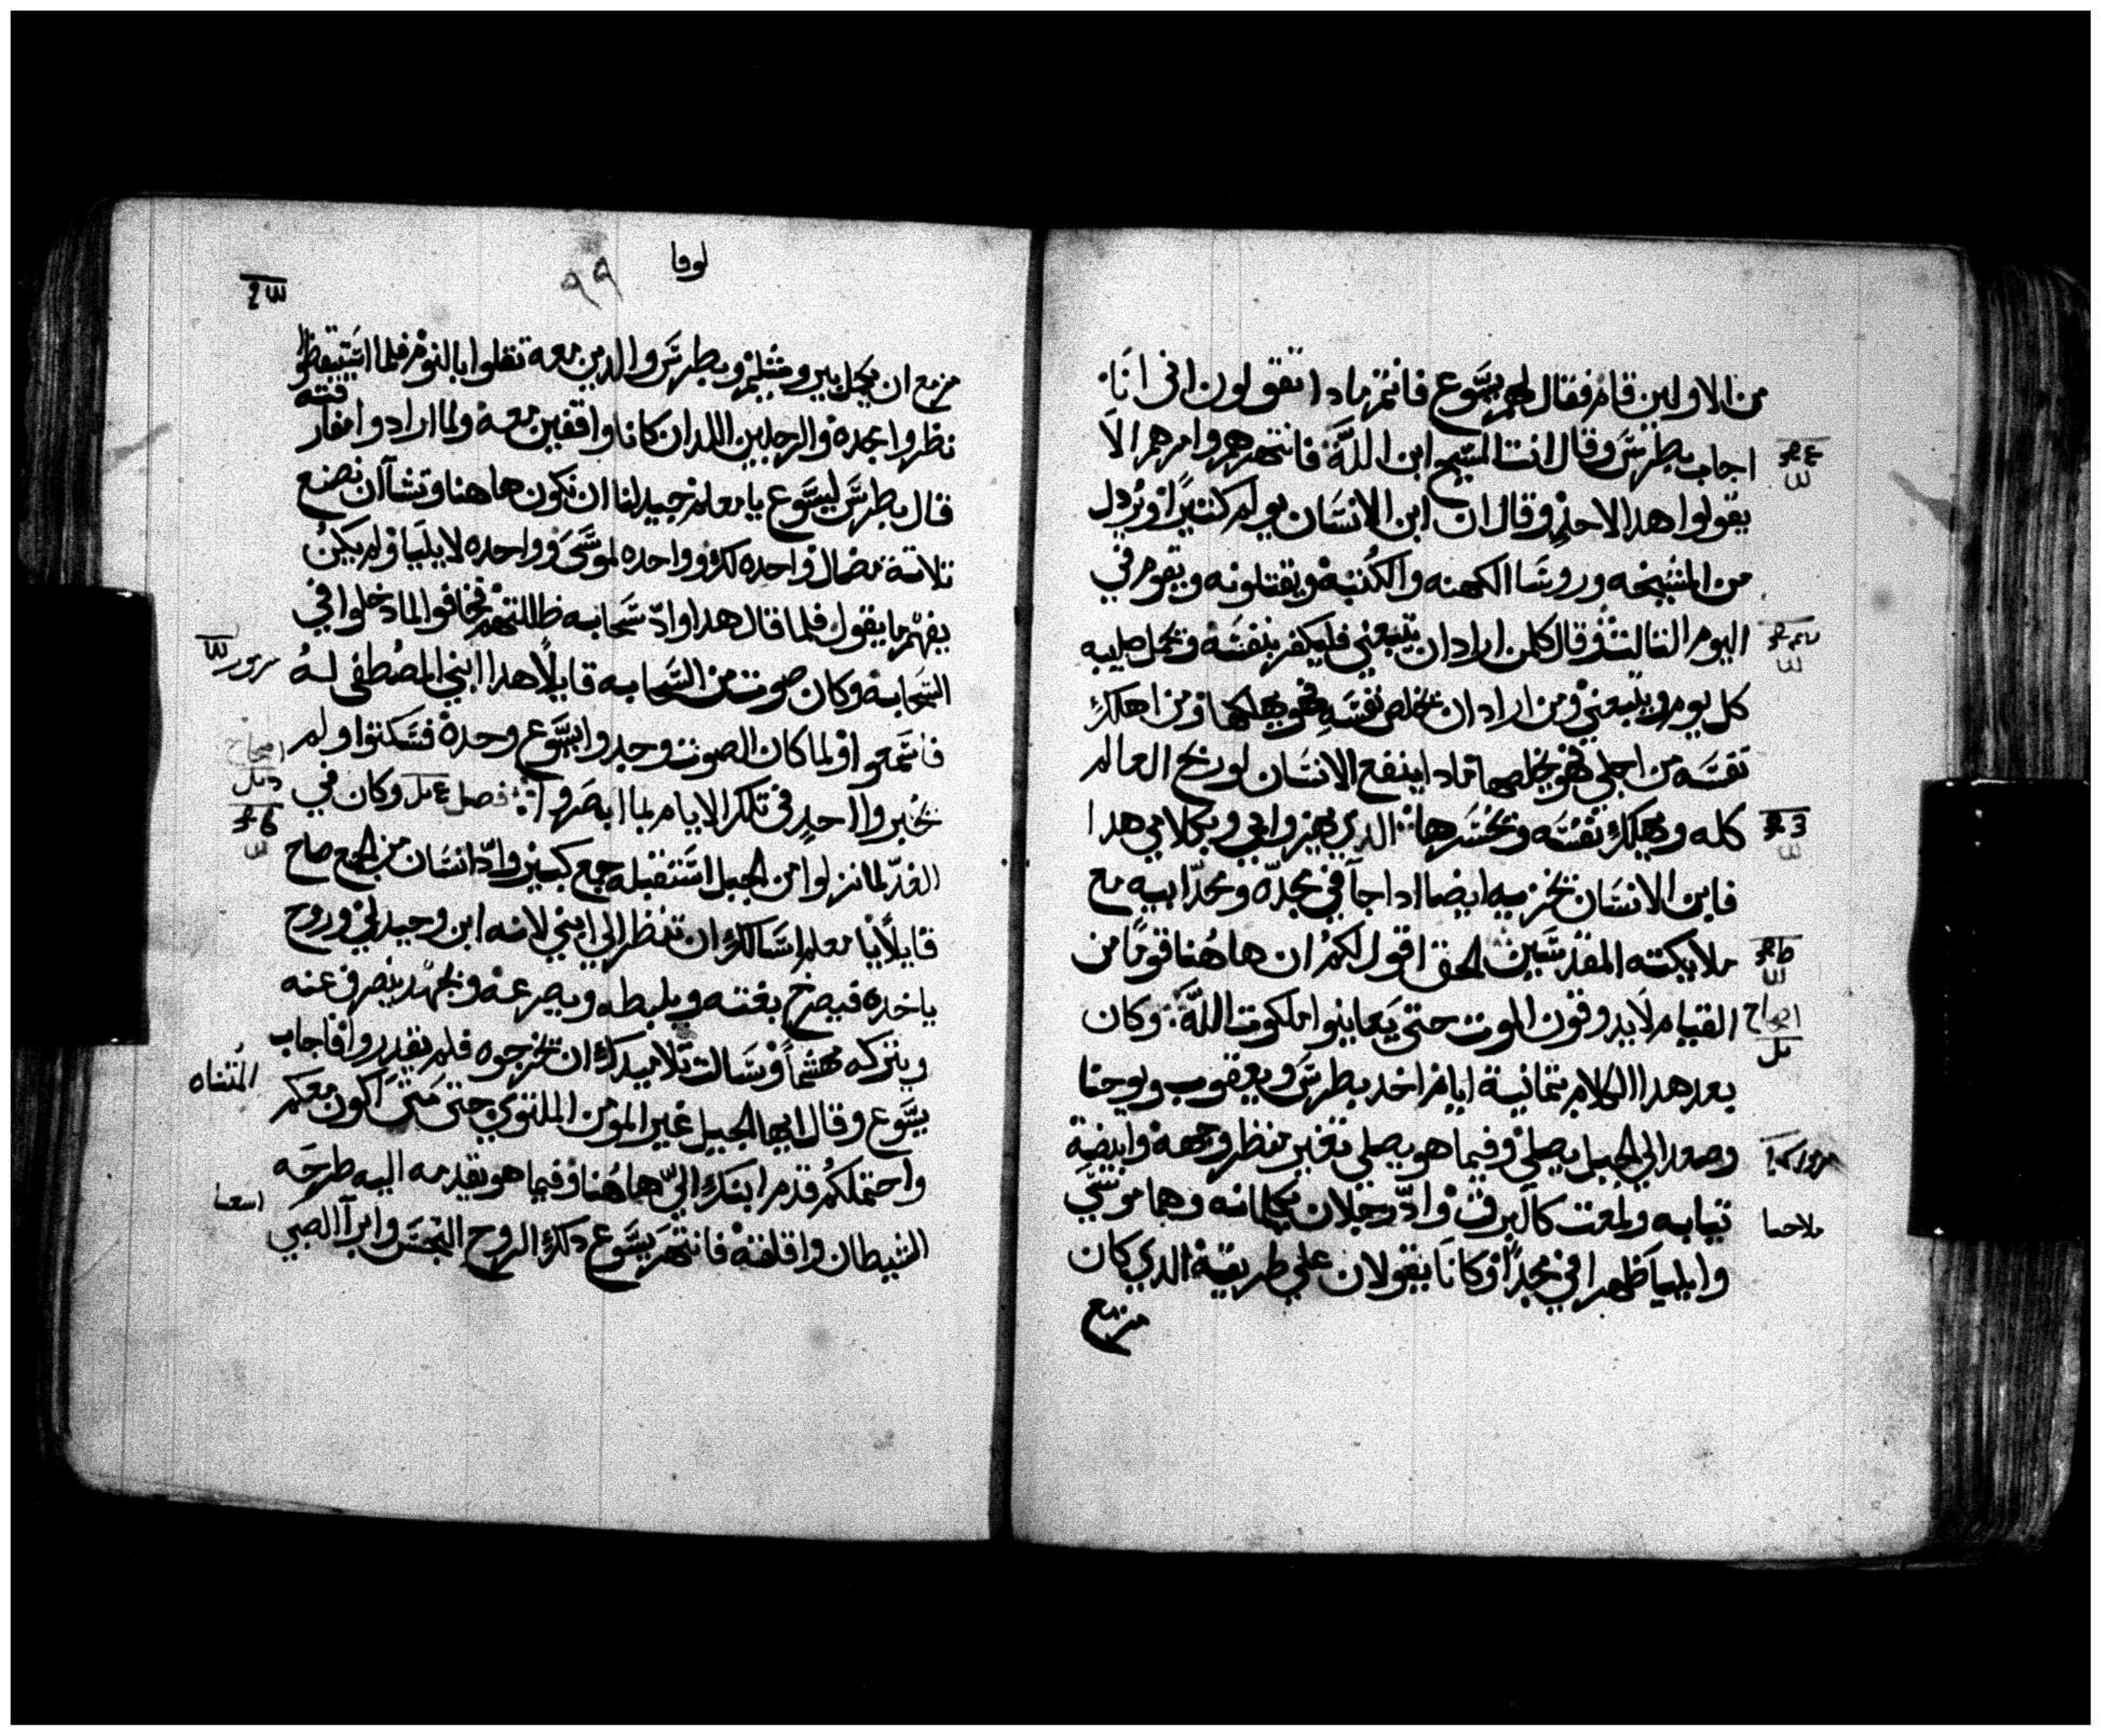 من الاولين قام فقال لهم يسوع فانتم مادا تقولون انى انا
اجاب بطرس وقال انت المسيح ابن الله فانتهرهم وامرهم الا
يقولوا هدا لاحد وقال ان ابن الانسان يولم كتيرا ويردل
من المشيخه وروسا الكهنه والكتبة ويقتلونه ويقوم في
اليوم التالت وقال كلمن اراد ان يتبعني فليكفر بنفسه ويحمل صليبه
كل يوم ويتبعني ومن اراد ان يخلص نفسه فهو يهلكها ومن اهلك
نفسه من اجلي فهو يخلصها مادا ينفع الانسان لو ربح العالم
كله ويهلك نفسه ويخسرها الدي يهزوا بي وبكلامي هدا
فابن الانسان يخزيه ايضا ادا جا في مجده ومجد ابيه مع
ملايكته المقدسين الحق اقول لكم ان هاهنا قوما من
القيام لا يدوقون الموت حتى يعاينوا ملكوت الله وكان
بعد هدا الكلام بتمانية ايام اخد بطرس ويعقوب ويوحنا
وصعد الي الجبل يصلي وفيما هو يصلي تغير منظر وجهه وابيضة
تيابه ولمعت كالبرق واد رجلان يكلمانه وهما موسي
وايليا ظهرا في مجد وكانا يقولان علي طريقة الدي كان
مزمع
لوقا
٩٩
مزمع ان يكمل بيروشليم وبطرس والدين معه تقلوا بالنوم فلما استيقظوا
نظروا مجده والرجلين اللدان كانا واقفين معه ولما ارادوا مفار
قته
قال بطرس ليسوع يا معلم جيد لنا ان نكون هاهنا وتشا ان نصنع
تلاتة مضال واحده لك وواحده لموسى وواحده لايليا ولم يكن
يفهم ما يقول فلما قال هدا واد سحابه ظللتهم فخافوا لما دخلوا في
السحابة وكان صوت من السحابه قايلا هدا ابني المصطفى له
فاسمعوا ولما كان الصوت وجدوا يسوع وحده فسكتوا ولم
يخبروا احد في تلك الايام بما ابصروا فصل وكان في
الغد لما نزلوا من الجبل استقبله جمع كبير واد انسان من الجمع صاح
قايلا يا معلم اسالك ان تنظر الي ابني لانه ابن وحيد لي وروح
ياخده فيصرخ بغته ويلبطه ويصرعه وبجهد ينصرف عنه
ويتركه مهشما وسالت تلاميدك ان يخرجوه فلم يقدروا فاجاب
يسوع وقال ايها الجيل غير المومن الملتوي حتى متى اكون معكم
واحتملكم قدم ابنك الي هاهنا وفيما هو يقدمه اليه طرحه
الشيطان واقلقه فانتهر يسوع دلك الروح النجس وابرا الصبي